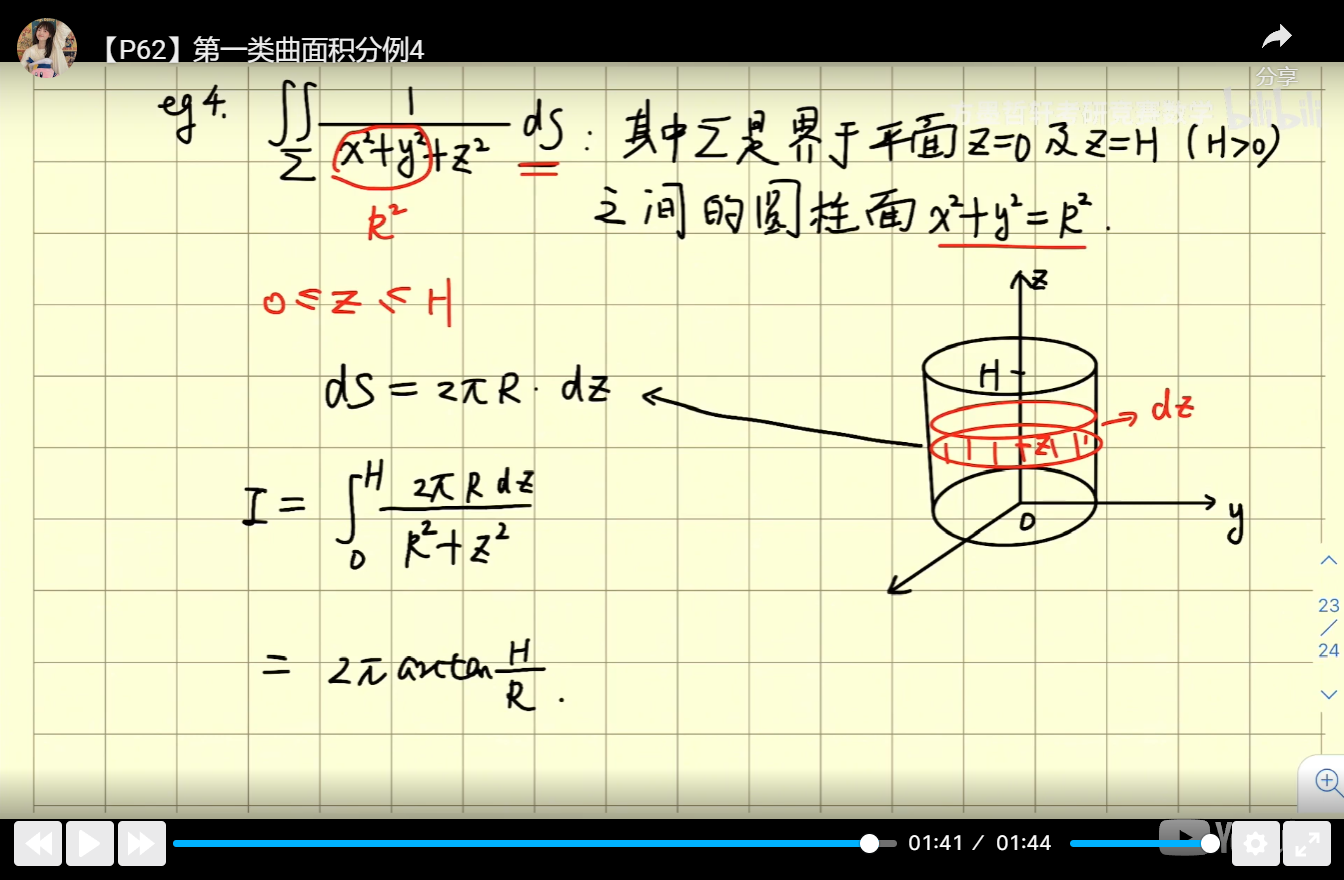 【P62】第一类曲面积分例4
分享
bilibili
eg 4. ∬_Σ 1/(x²+y²+z²) dS : 其中Σ是界于平面z=0及z=H (H>0)
之间的圆柱面 x²+y²=R².
R²
0≤z≤H
z
H
dS = 2πR· dz
dz
z
I = ∫_0^H 2πR dz/(R²+z²)
0
y
= 2π arctan H/R.
23
/
24
01:41 / 01:44